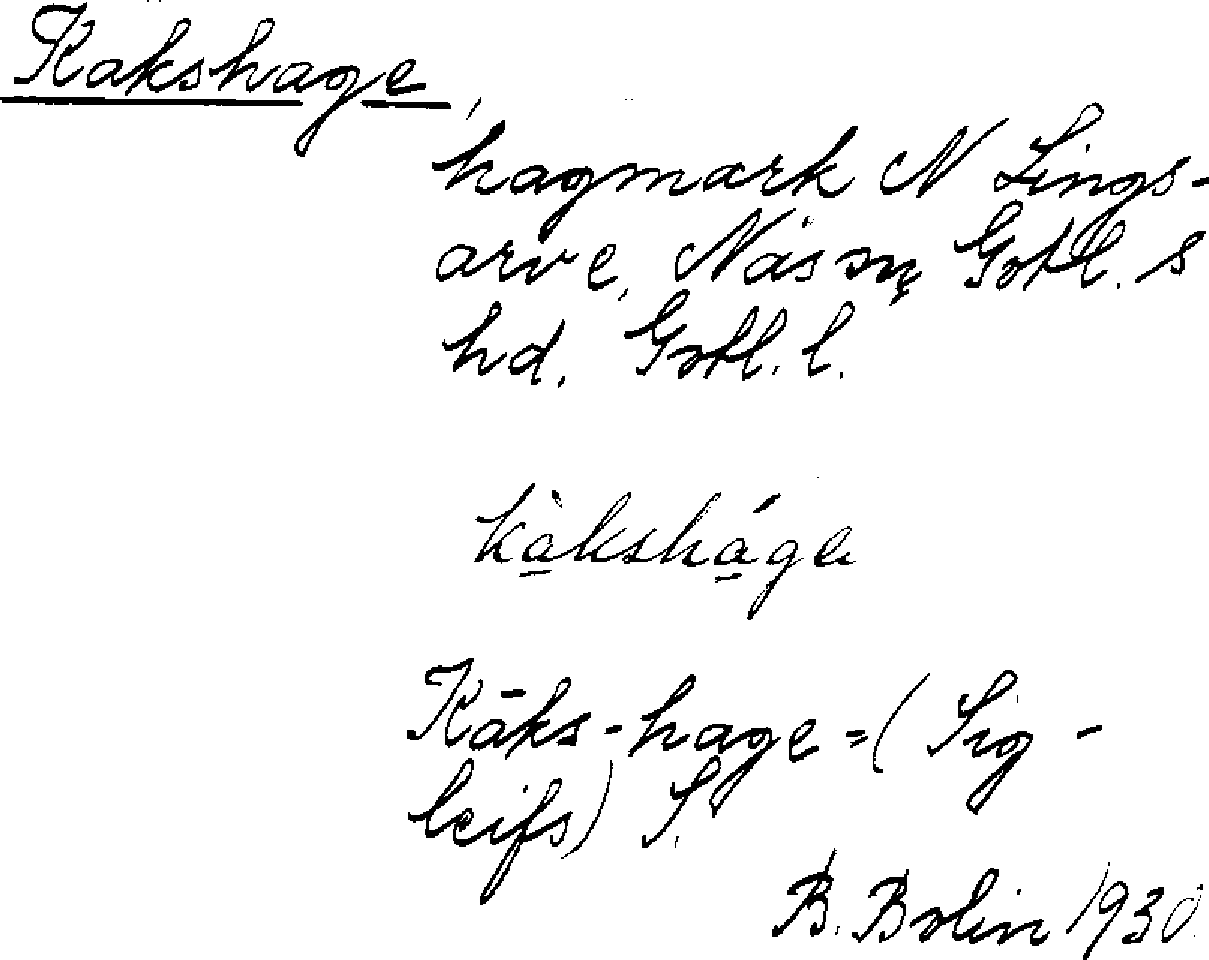 Kakshage,
hagmark N Sings-
arve, Näs sn Gotl. s
hd. Gotl. l.
kàksháge
Kāks-hage = (Sig-
leifs) S.
B. Bolin 1930